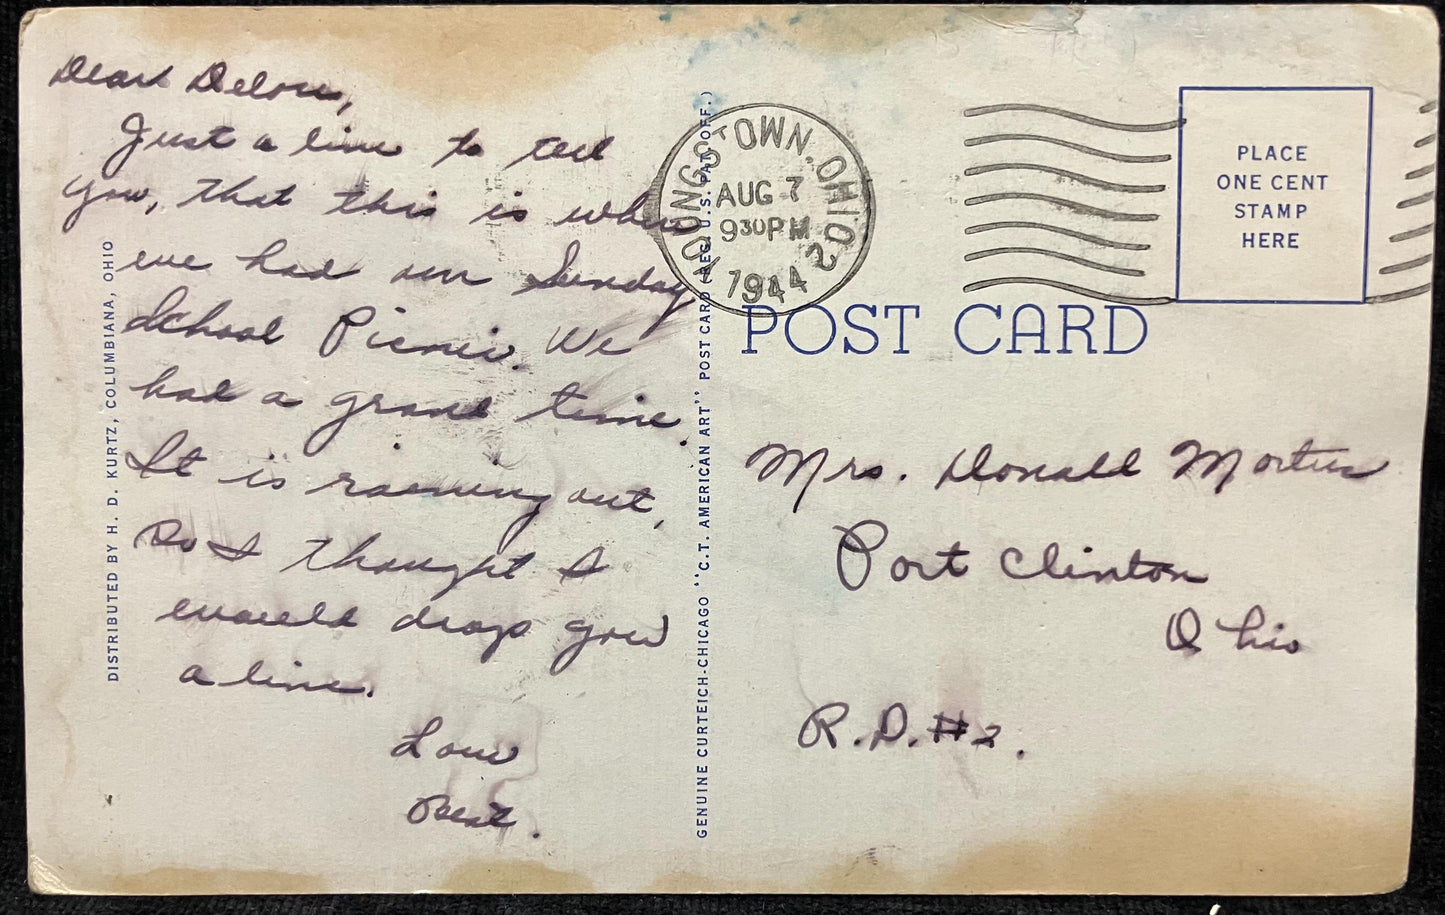 Dear Delores,
Just a line to tell
you, that this is where
we had our Sunday
School Picnic. We
had a grand time.
It is raining out,
so I thought I
would drop you
a line.
Love
DISTRIBUTED BY H. D. KURTZ, COLUMBIANA, OHIO
GENUINE CURTEICH-CHICAGO "C.T. AMERICAN ART" POST CARD (REG. U.S. PAT. OFF.)
YOUNGSTOWN, OHIO 2
AUG 7
930PM
1944
PLACE
ONE CENT
STAMP
HERE
POST CARD
Mrs. Donald
Port Clinton
Ohio
R.D. #2.